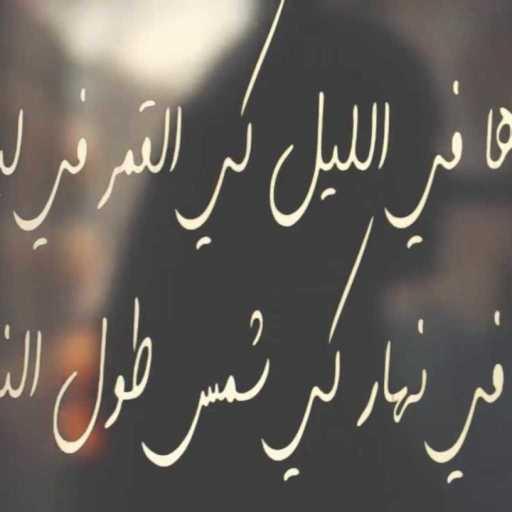 ها في الليل كي القمر في
في نهار كي شمس طول